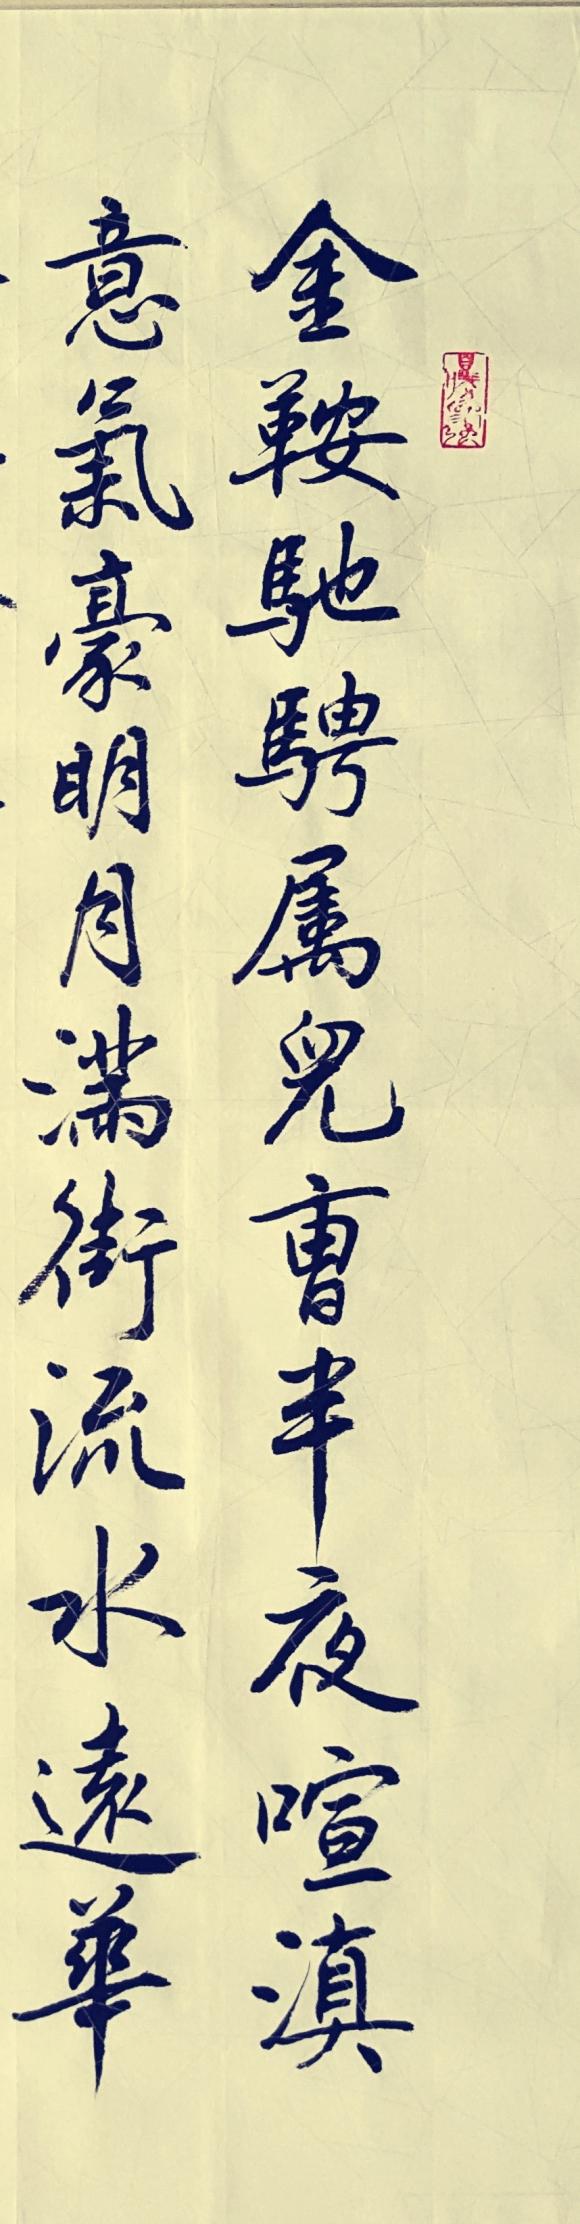 金鞍馳騁屬兒曹半夜喧滇
意氣豪明月滿街流水遠華